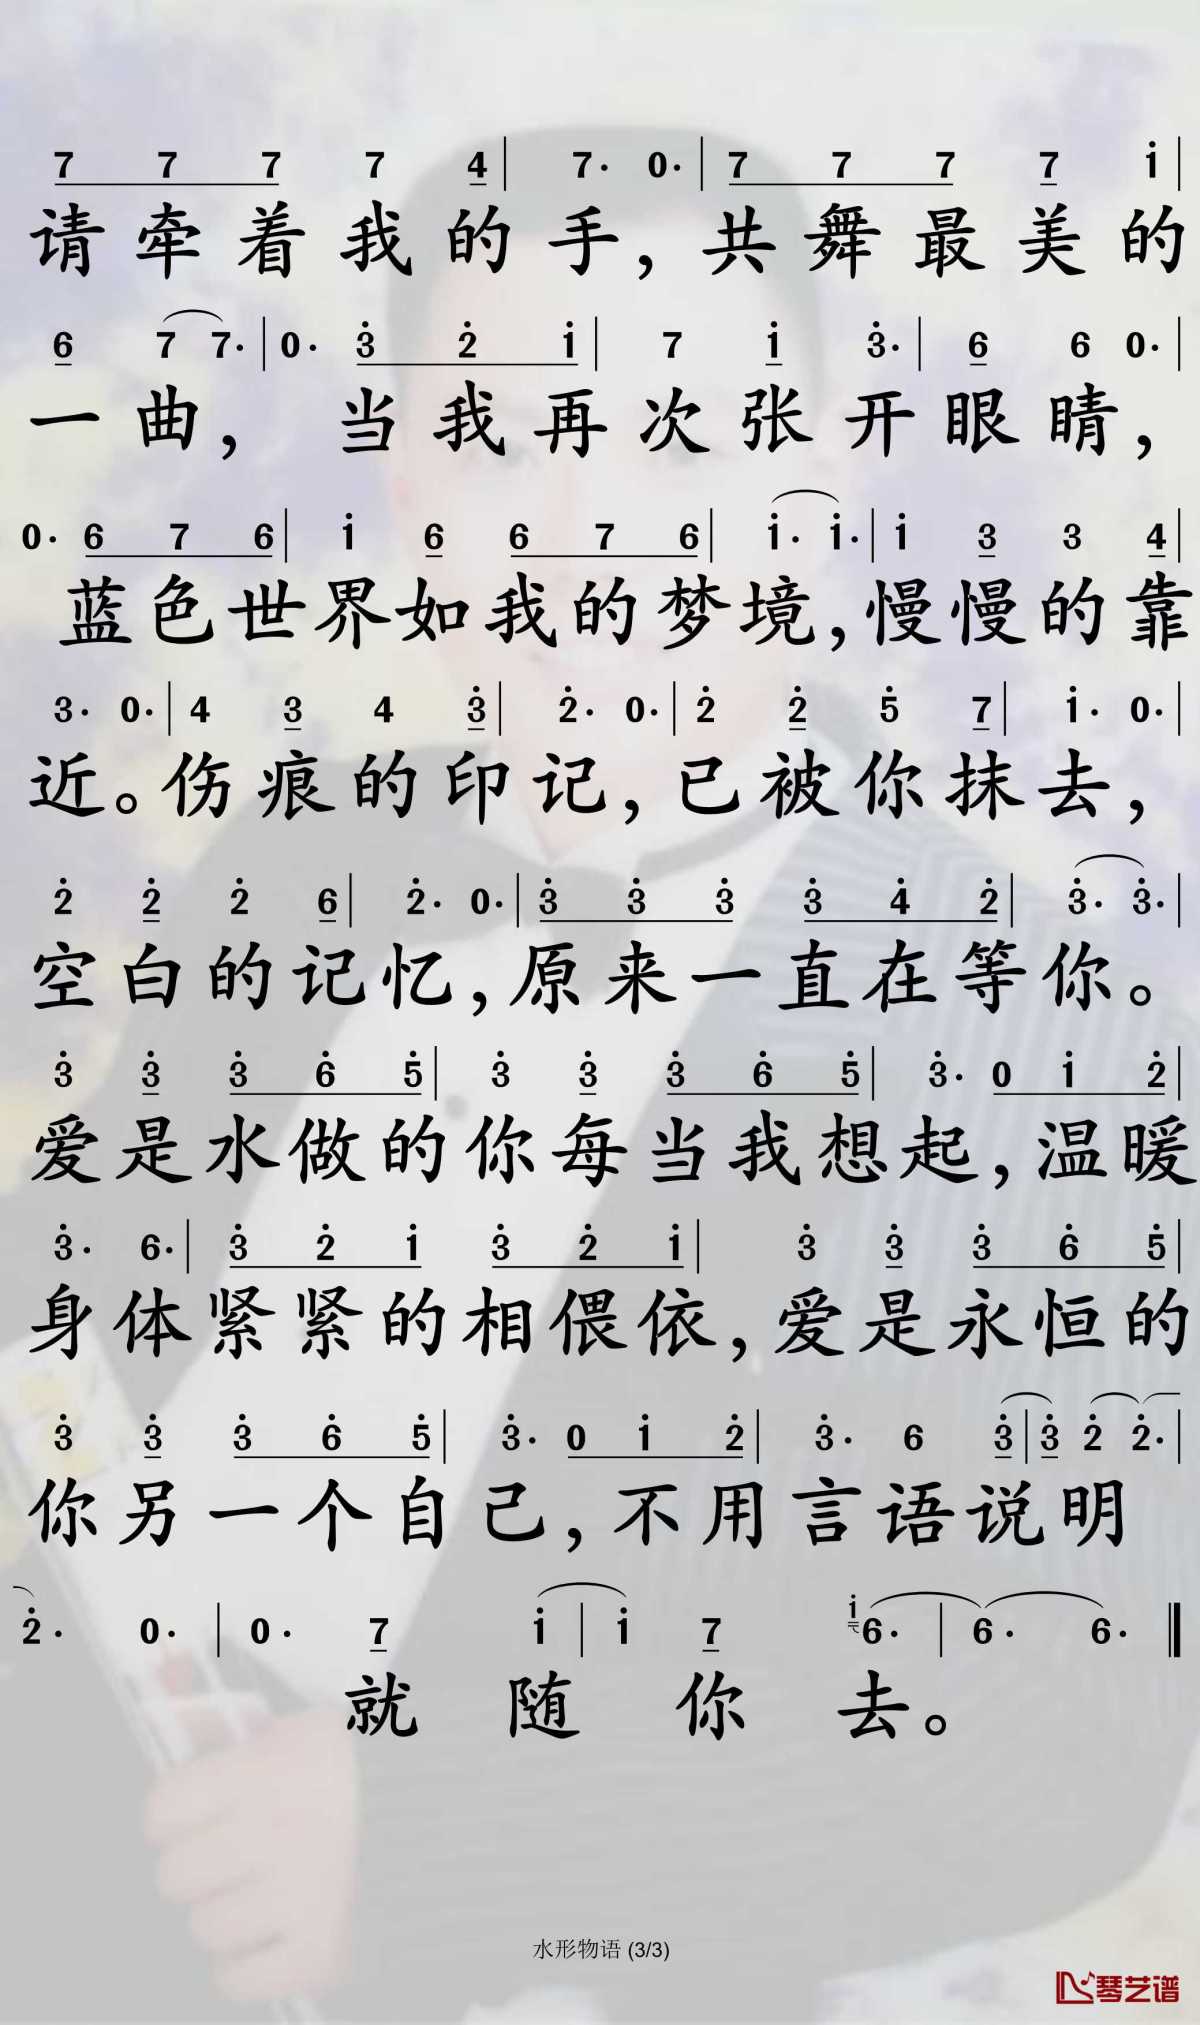 7 7 7 7 4 | 7· 0· | 7 7 7 7 i |
请牵着我的手，共舞最美的
6 7 7· | 0· 3̇ 2̇ i | 7 i 3̇· | 6 6 0· |
一曲，当我再次张开眼睛，
0· 6 7 6 | i 6 6 7 6 | i· i· | i 3 3 4 |
蓝色世界如我的梦境，慢慢的靠
3· 0· | 4 3 4 3̇ | 2̇· 0· | 2̇ 2̇ 5̇ 7 | i· 0· |
近。伤痕的印记，已被你抹去，
2̇ 2̇ 2̇ 6 | 2̇· 0· | 3̇ 3̇ 3̇ 3̇ 4̇ 2̇ | 3̇· 3̇· |
空白的记忆，原来一直在等你。
3̇ 3̇ 3̇ 6̇ 5̇ | 3̇ 3̇ 3̇ 6̇ 5̇ | 3̇· 0 i 2̇ |
爱是水做的你每当我想起，温暖
3̇· 6· | 3̇ 2̇ i 3̇ 2̇ i | 3̇ 3̇ 3̇ 6̇ 5̇ |
身体紧紧的相偎依，爱是永恒的
3̇ 3̇ 3̇ 6̇ 5̇ | 3̇· 0 i 2̇ | 3̇· 6 3̇ | 3̇ 2̇ 2̇· |
你另一个自己，不用言语说明
2̇· 0· | 0· 7 i | i 7 i 6· | 6· 6· |
就随你去。
水形物语 (3/3)
琴艺谱